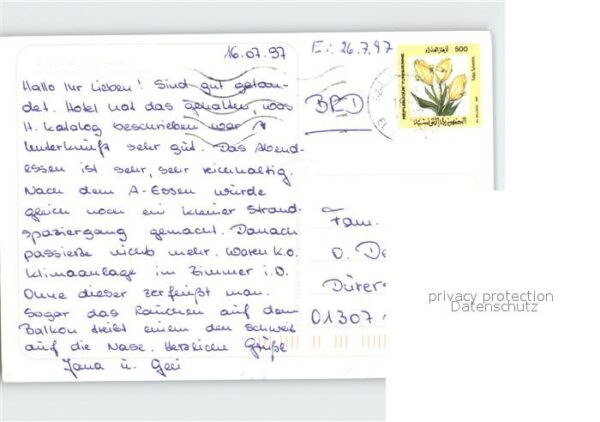 16.07.97
E: 26.7.97
Hallo Ihr Lieben! Sind gut gelan-
det. Hotel hat das gehalten, was
lt. Katalog beschrieben war
Unterkunft sehr gut. Das Abend-
essen ist sehr, sehr reichhaltig.
Nach dem A-Essen wurde
gleich noch ein kleiner Strand-
spaziergang gemacht. Danach
passierte nichts mehr. Waren k.o.
Klimaanlage im Zimmer i.O.
Ohne dieser zerfließt man.
Sogar das Rauchen auf dem
Balkon treibt einem den Schweiß
auf die Nase. Herzlichen Grüße
Jana u.
BRD
500
REPUBLIQUE TUNISIENNE
الجمهورية التونسية
Fam.
O. De
Dürers
01307
privacy protection
Datenschutz